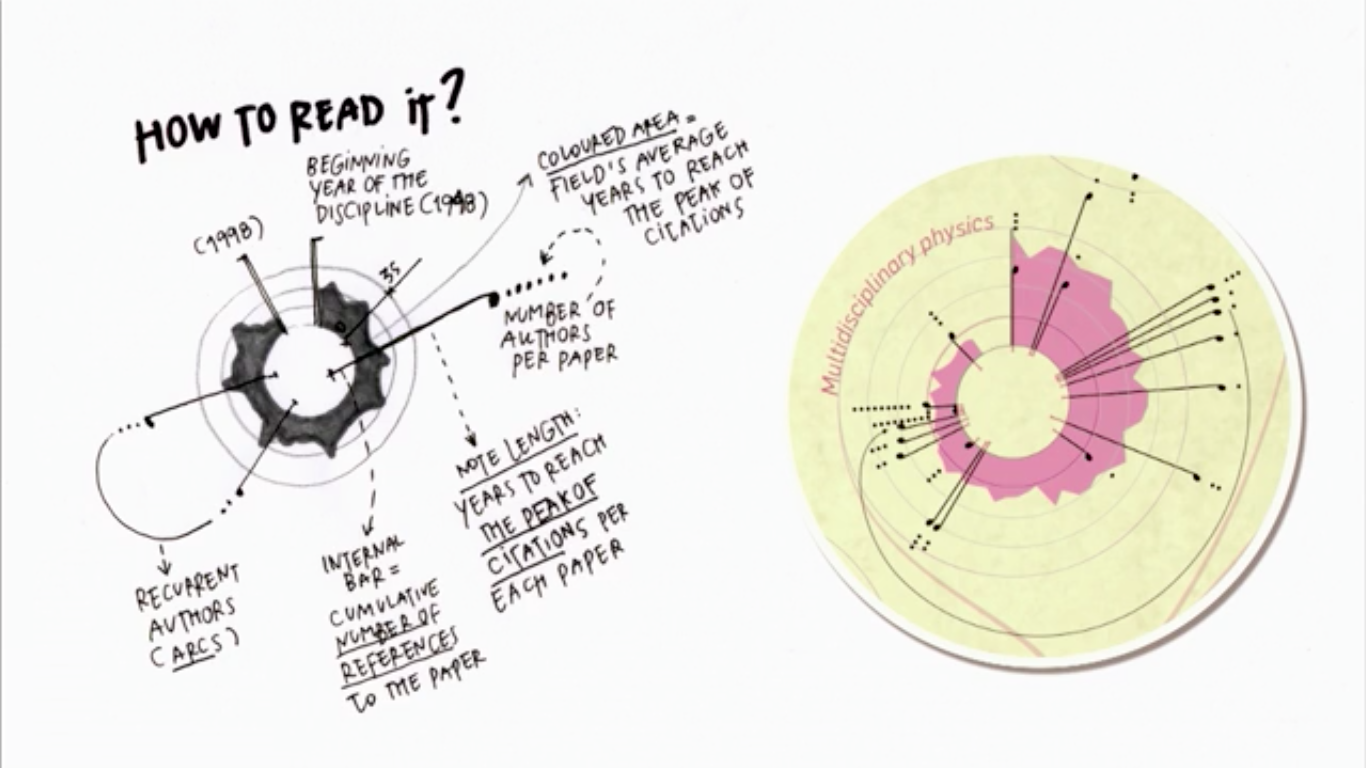 HOW TO READ iT?
BEGINNING
YEAR OF THE
DISCIPLINE (1948)
(1998)
COLOURED AREA =
FIELD'S AVERAGE
YEARS TO REACH
THE PEAK OF
CITATIONS
35
NUMBER OF
AUTHORS
PER PAPER
NOTE LENGTH:
YEARS TO REACH
THE PEAK OF
CITATIONS PER
EACH PAPER
INTERNAL
BAR =
CUMULATIVE
NUMBER OF
REFERENCES
TO THE PAPER
RECURRENT
AUTHORS
(ARCS)
Multidisciplinary physics